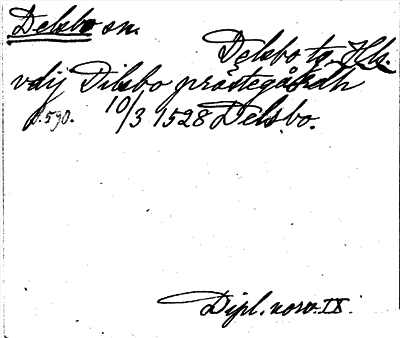 Delsbo sn.
Delsbo tg, Hls.
vdij Dilsbo prästegårdh
s. 590. 10/3 1528 Delsbo.
Dipl. norv. IX.